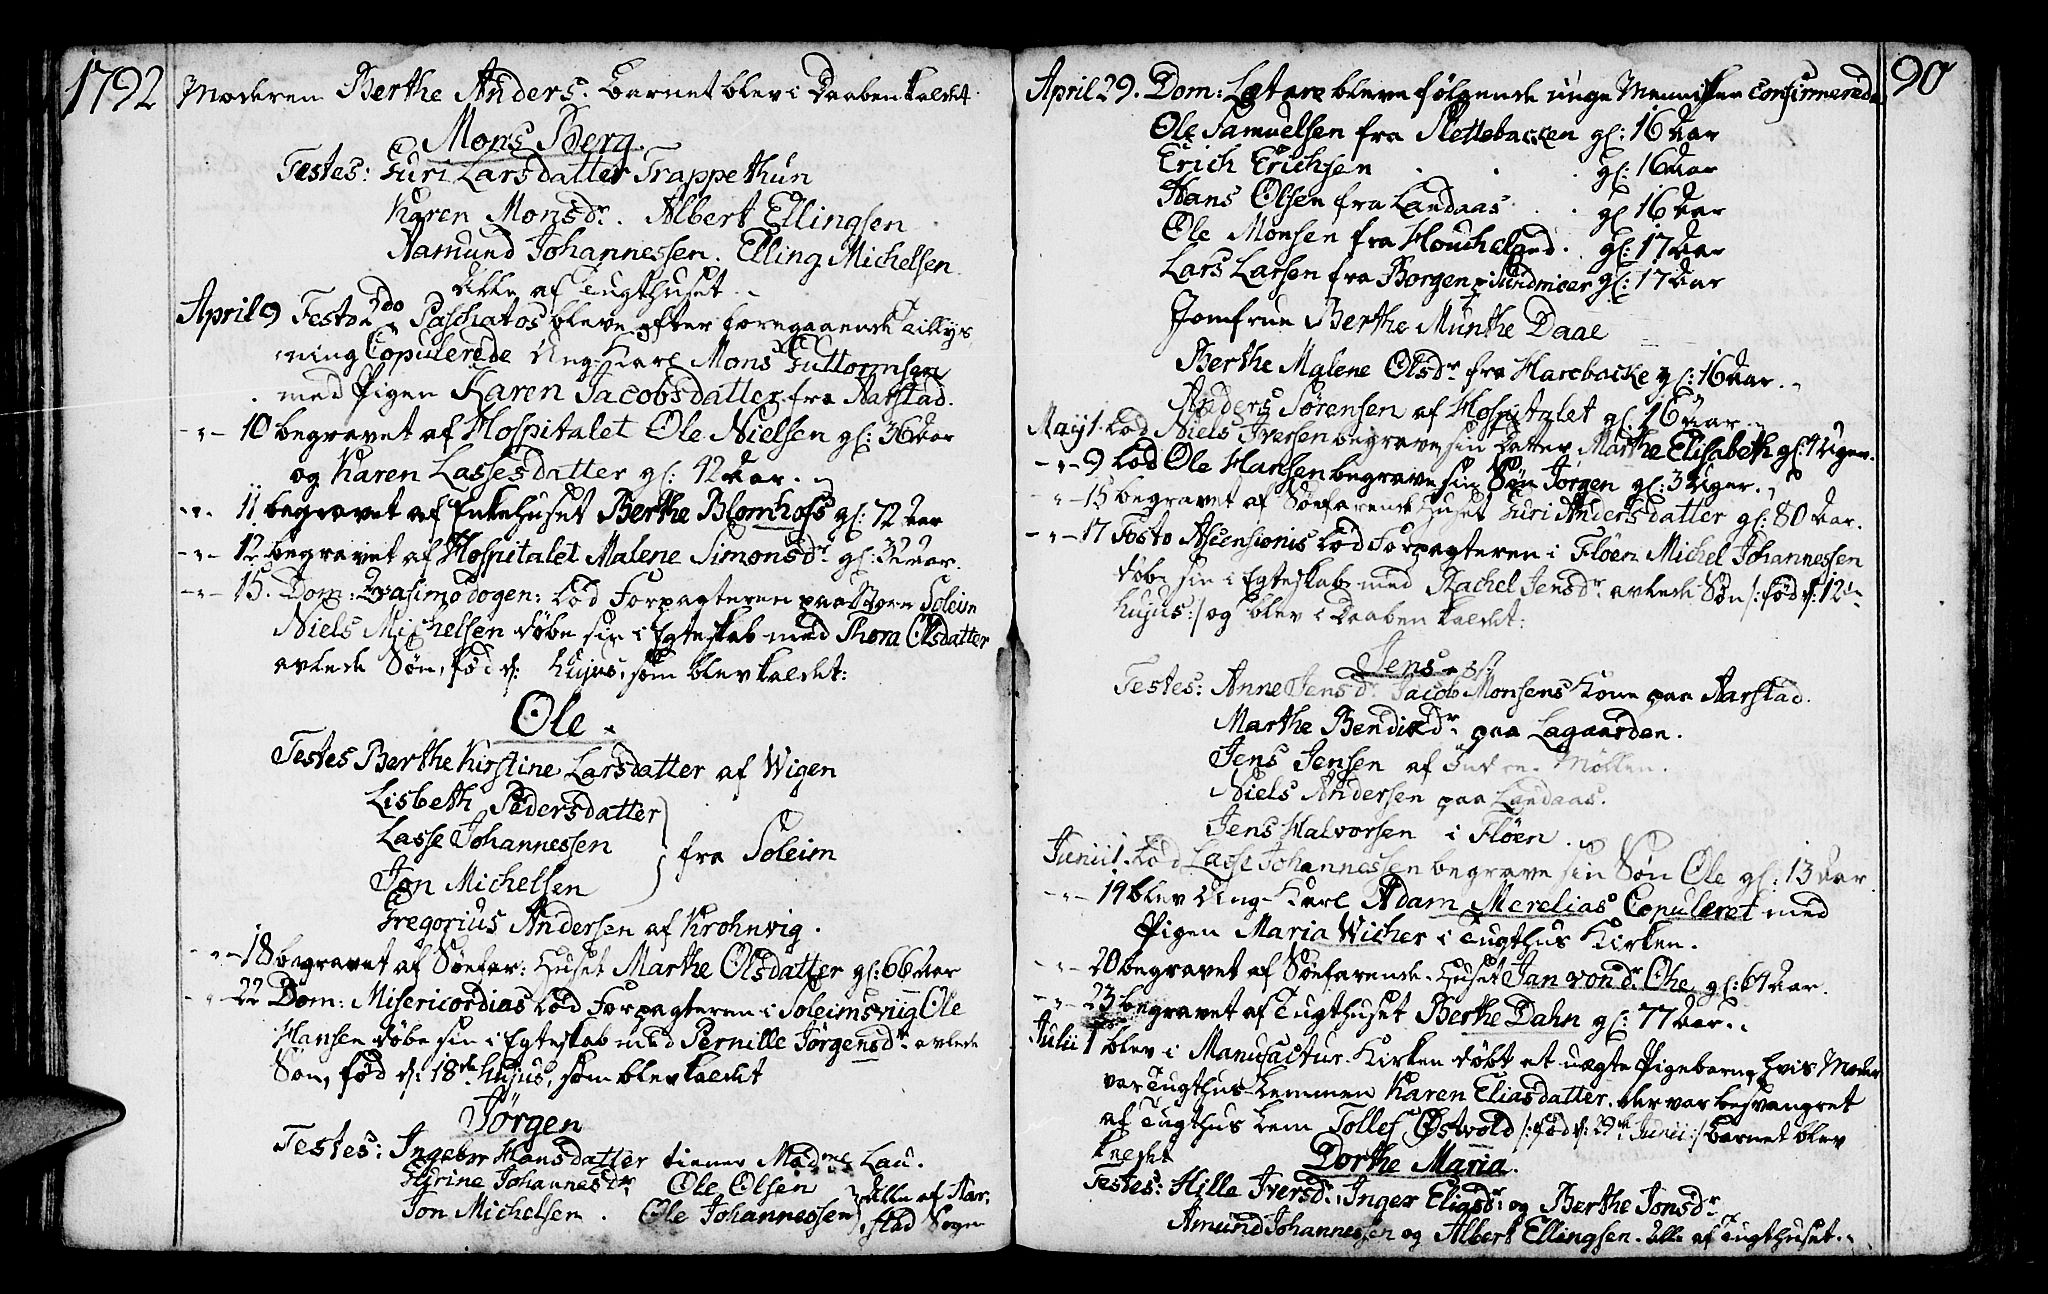 1792
Moderen Berthe Anders. Barnet blev i Daaben kaldet
Mons Berg.
Testes: Guri Larsdatter Trappethun
Karen Monsdr. Albert Ellingsen
Aamund Johannessen. Elling Michelsen
alle af Tugthuset
April 9 Festo 2do Paschatos bleve efter foregaaende Tillys
ning Copulerede Ung-Karl Mons Guttormsen
med Pigen Karen Jacobsdatter fra Aarstad.
-"- 10 begravet af Hospitalet Ole Nielsen gl: 36 Aar
og Karen Lassesdatter gl: 42 Aar.
-"- 11 begravet af Enkehuset Berthe Blomhoff gl: 72 Aar
-"- 12 begravet af Hospitalet Malene Simonsdr. gl: 32 Aar.
-"- 15. Dom: Qvasimodogen: lod Forpagteren paa Store Soleim
Niels Michelsen døbe sin i Egteskab med Thora Olsdatter
avlede Søn, fød d: hujus, som blev kaldet:
Ole
Testes Berthe Kirstine Larsdatter af Wigen
Lisbeth Pedersdatter
Lasse Johannessen
fra Soleim
Jon Michelsen
Gregorius Andersen af Krohnvig.
-"- 18 begravet af Søefar: Huset Marthe Olsdatter gl: 66 Aar
-"- 22 Dom: Misericordias lod Forpagteren i Soleimsviig Ole
Hansen døbe sin i Egteskab med Pernille Jørgensdr. avlede
Søn, fød d: 18de hujus, som blev kaldet
Jørgen
Testes: Ingebor Hansdatter tiener Mad Lau.
Johannesdr Ole Olsen
Alle af Aar:
Jon Michelsen. Ole Johannessen
stad Sogn
90
April 29. Dom: Lætare bleve følgende unge Mennisker confirmerede
Ole Samuelsen fra Slettebacken gl: 16 Aar
Erich Erichsen gl: 16 Aar
Hans Olsen fra Landaas gl 16 Aar
Ole Monsen fra Houcheland. gl: 17 Aar
Lars Larsen fra Borgen i Sundmoer gl: 17 Aar
Jomfrue Berthe Munthe Daae
Berthe Malene Olsdr. fra Harebacke gl: 16 Aar.
Anders Sørensen af Hospitalet gl: 16 Aar.
May 1. lod Niels Iversen begrave sin Datter Marthe Elisabeth gl: 4 Uger.
-"- 9 lod Ole Hansen begrave sin Søn Jørgen gl: 3 Uger.
-"- 15 begravet af Søefarende Huset Guri Andersdatter gl: 80 Aar.
-"- 17 Festo Ascensionis lod Forpagteren i Fløen Michel Johannessen
døbe sin i Egteskab med Rachel Jensdr. avlede Søn /: fød d: 12
hujus :/ og blev i Daaben kaldet:
Jens
Testes: Anne Jensdr. Jacob Monsens Kone paa Aarstad.
Marthe Bendixdr. paa Lagaarden.
Jens Jensen af Møllen.
Niels Andersen paa Landaas.
Jens Halvorsen i Fløen.
Junii 1. lod Lasse Johannessen begrave sin Søn Ole gl: 13 Aar
-"- 19 blev Ung-Karl Adam Merelias Copuleret med
Pigen Maria Wicher i Tugthus Kirken.
-"- 20 begravet af Søefarende-Huset Jan von dr Ohe, gl: 64 Aar.
-"- 23 begravet af Tugthuset Berthe Dahn gl: 77 Aar.
Julii 1 blev i Manufactur-Kirken døbt et uægte Pigebarn, hvis Moder
var Tugthus-Lemmen Karen Eliasdatter, der var besvangret
af Tugthus Lem Tollef Østvold /: fød d: 29de Junii :/ barnet blev
kaldet
Dorthe Maria.
Testes: Hille Iversdr., Inger Eliasdr. og Berthe Jonsdr.
Amund Johannessen og Albert Ellingsen. Alle af Tugthuset.